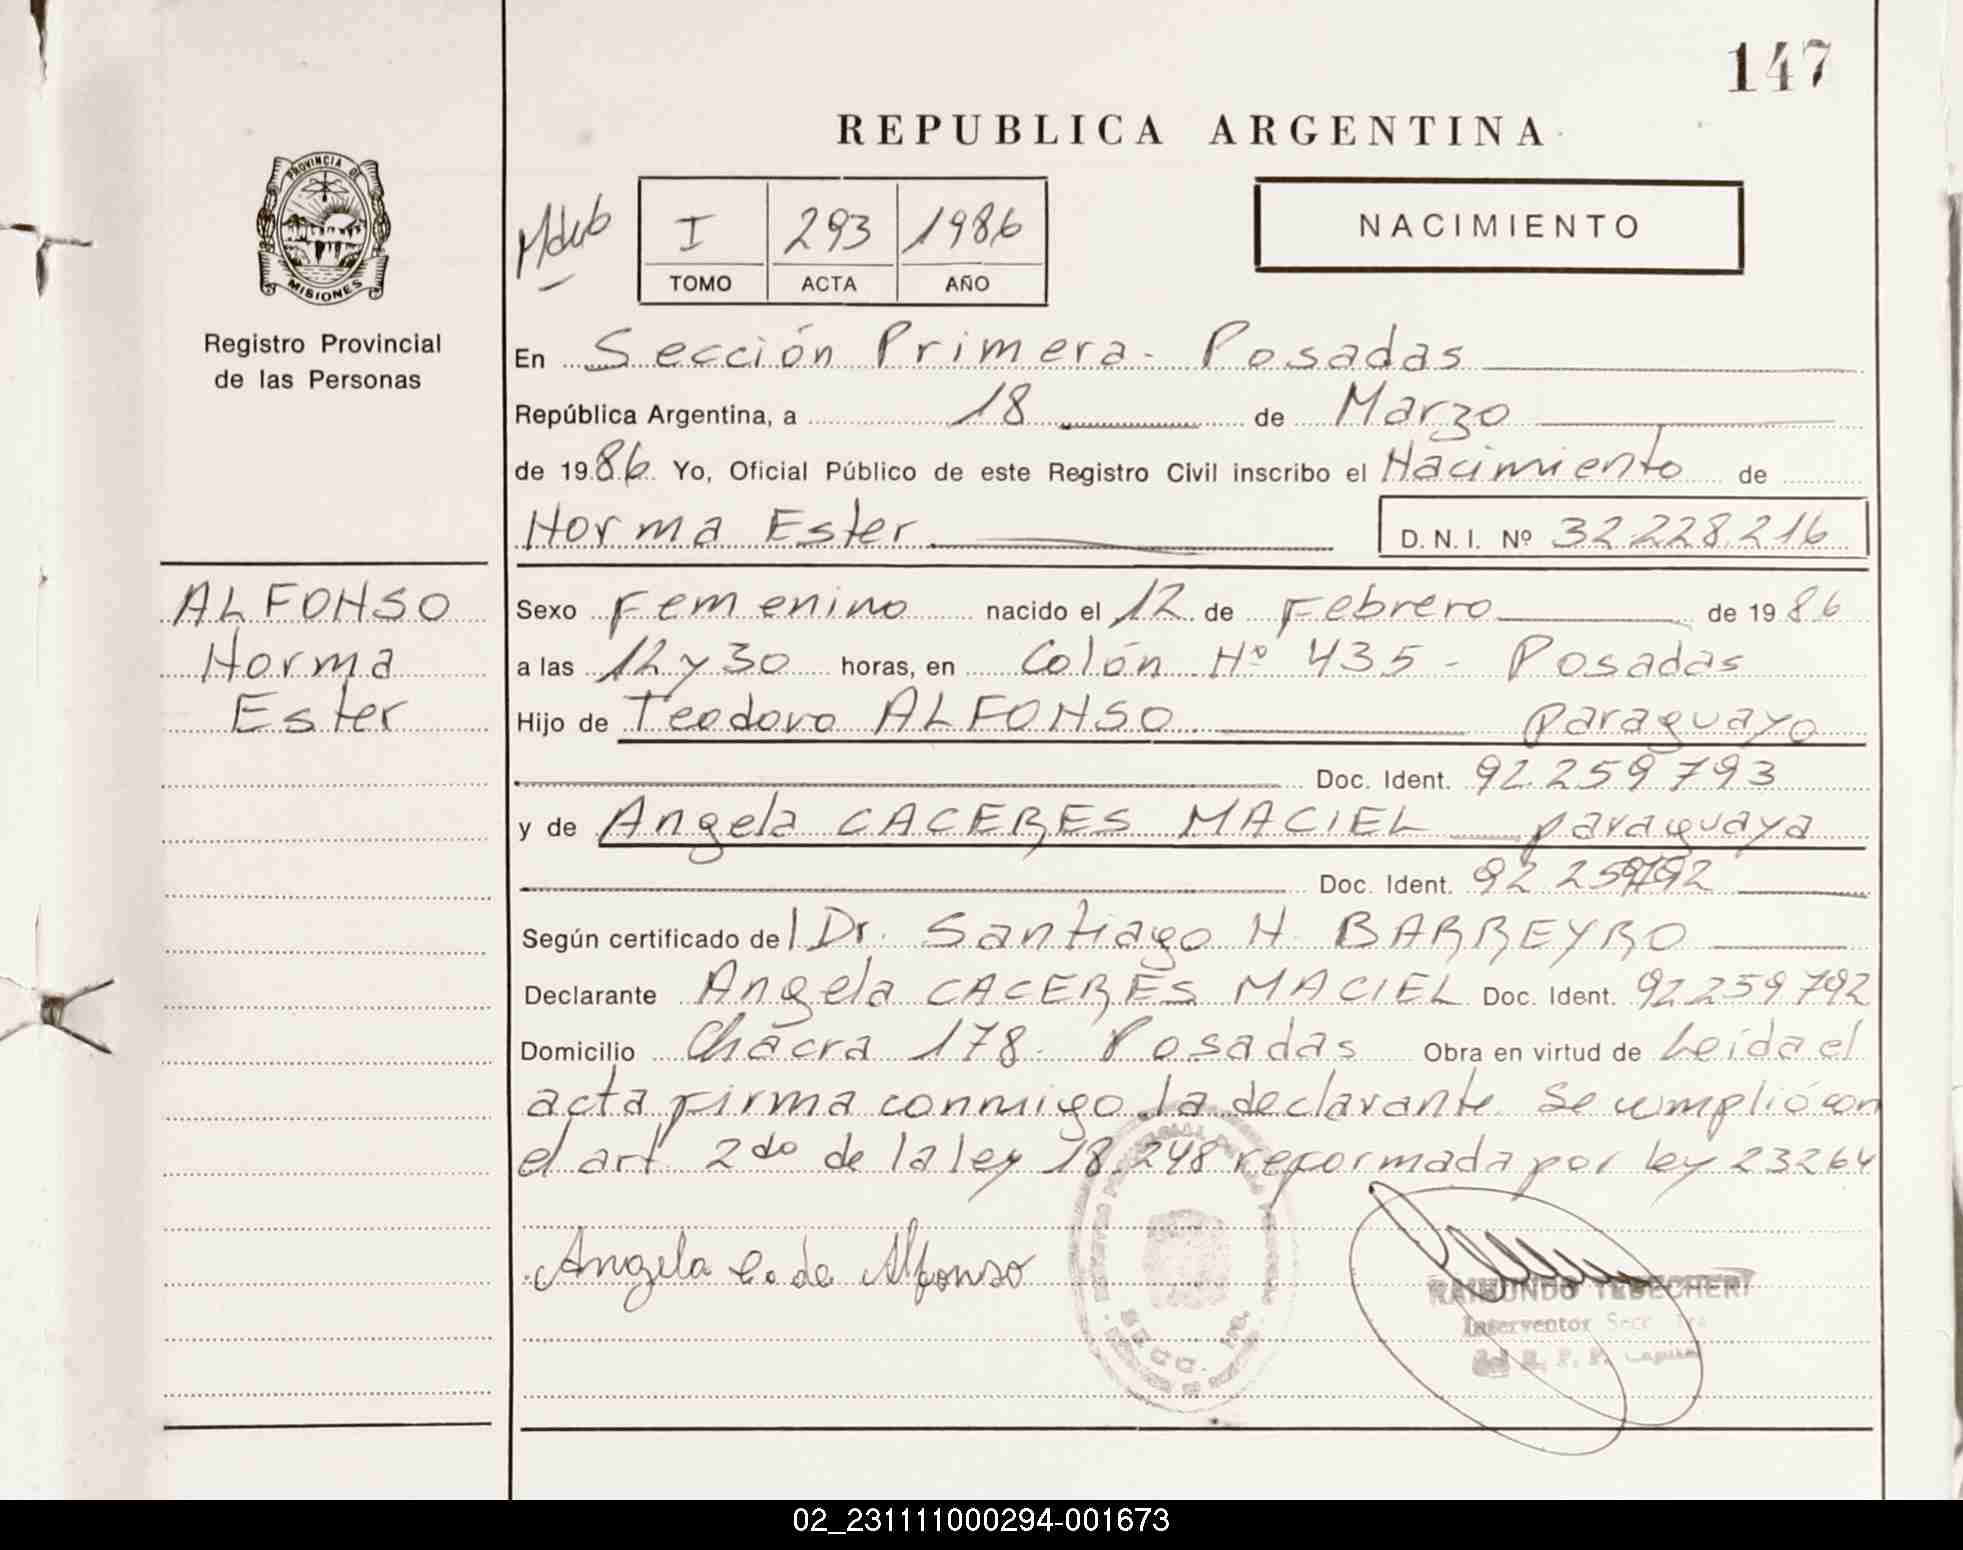 147
REPUBLICA ARGENTINA
PROVINCIA DE
MISIONES
Registro Provincial
de las Personas
I 293 1986
TOMO ACTA AÑO
NACIMIENTO
En Sección Primera - Posadas
República Argentina, a 18 de Marzo
de 1986 Yo, Oficial Público de este Registro Civil inscribo el Nacimiento de
Norma Ester D. N. I. Nº 32.228.216
ALFONSO
Norma
Ester
Sexo Femenino nacido el 12 de Febrero de 1986
a las 12 y 30 horas, en Colón Nº 435 - Posadas
Hijo de Teodoro ALFONSO paraguayo
Doc. Ident. 92.259.793
y de Angela CACERES MACIEL paraguaya
Doc. Ident. 92 259792
Según certificado del Dr. Santiago N. BARREYRO
Declarante Angela CACERES MACIEL Doc. Ident. 92.259.792
Domicilio Chacra 178 - Posadas Obra en virtud de Leída el
acta firma conmigo la declarante. Se cumplió con
el art 2do de la ley 18.248 reformada por ley 23264
Angela C. de Alfonso
SECC.
RAIMUNDO TEDECHERI
Interventor Secc. 1ra
R. P. P. Capital
02_231111000294-001673